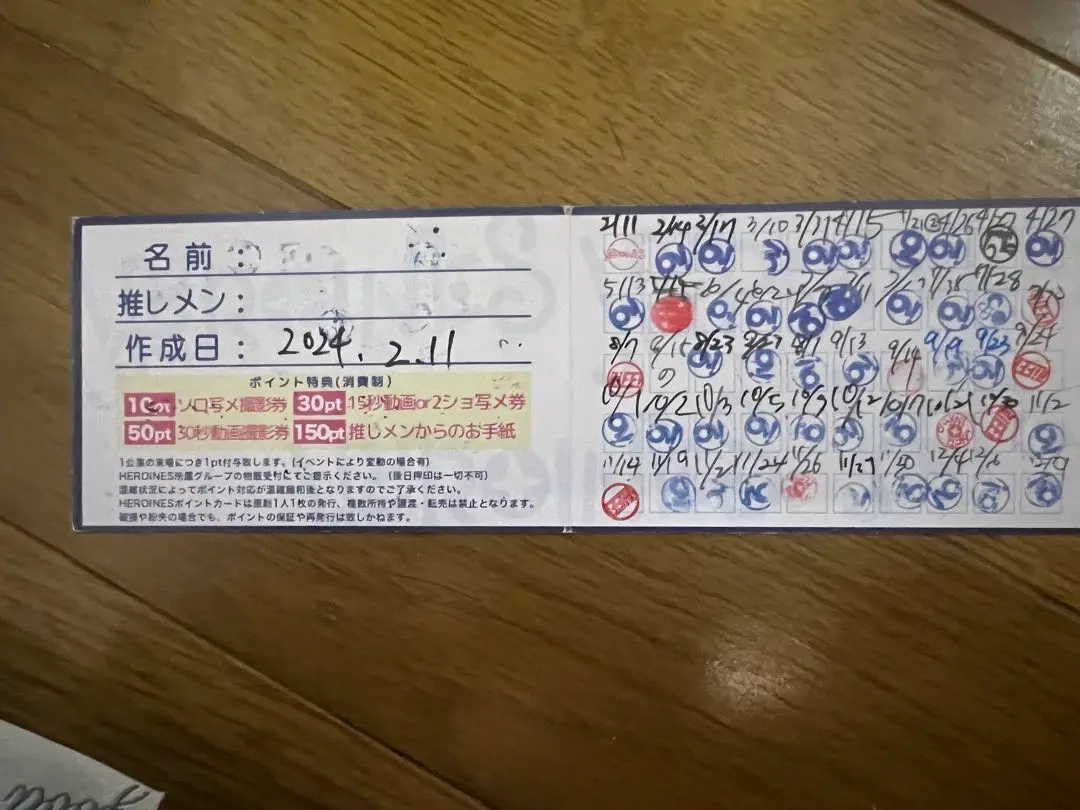 名前：
推しメン：
作成日： 2024. 2. 11
ポイント特典(消費制)
10pt ソロ写メ撮影券 30pt 15秒動画or2ショ写メ券
50pt 30秒動画撮影券 150pt 推しメンからのお手紙
1公演の来場につき1pt付与致します。(イベントにより変動の場合有)
HEROINES所属グループの物販受付にてご提示ください。(後日押印は一切不可)
混雑状況によってポイント対応が混雑緩和後となりますのでご了承ください。
HEROINESポイントカードは原則1人1枚の発行、複数所持や譲渡・転売は禁止となります。
破損や紛失の場合でも、ポイントの保証や再発行は致しかねます。
2/11 2/14 3/17 3/10 3/21 4/15 4/26 4/27
5/13 7/28
8/7 9/15 8/23 9/13 9/14 9/19 9/23 9/24
10/1 10/2 10/3 10/5 10/12 10/17 10/21 10/30 11/2
11/14 11/19 11/21 11/24 11/26 11/27 11/30 12/4